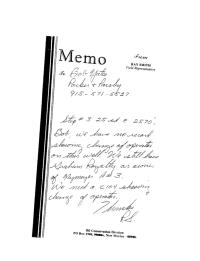 Memo
From
RAY SMITH
Field Representative
To Bob Yates
Parker & Parsley
915-571-5527
Stog # 3 25 sd & 2570'
Bob, we have no record
showing change of operator
on this well. We still have
Graham Royalty as owner
of # 3.
We need a C104 showing
change of operator.
Thanks
R.S.
Oil Conservation Division
PO Box 1980, Hobbs, New Mexico